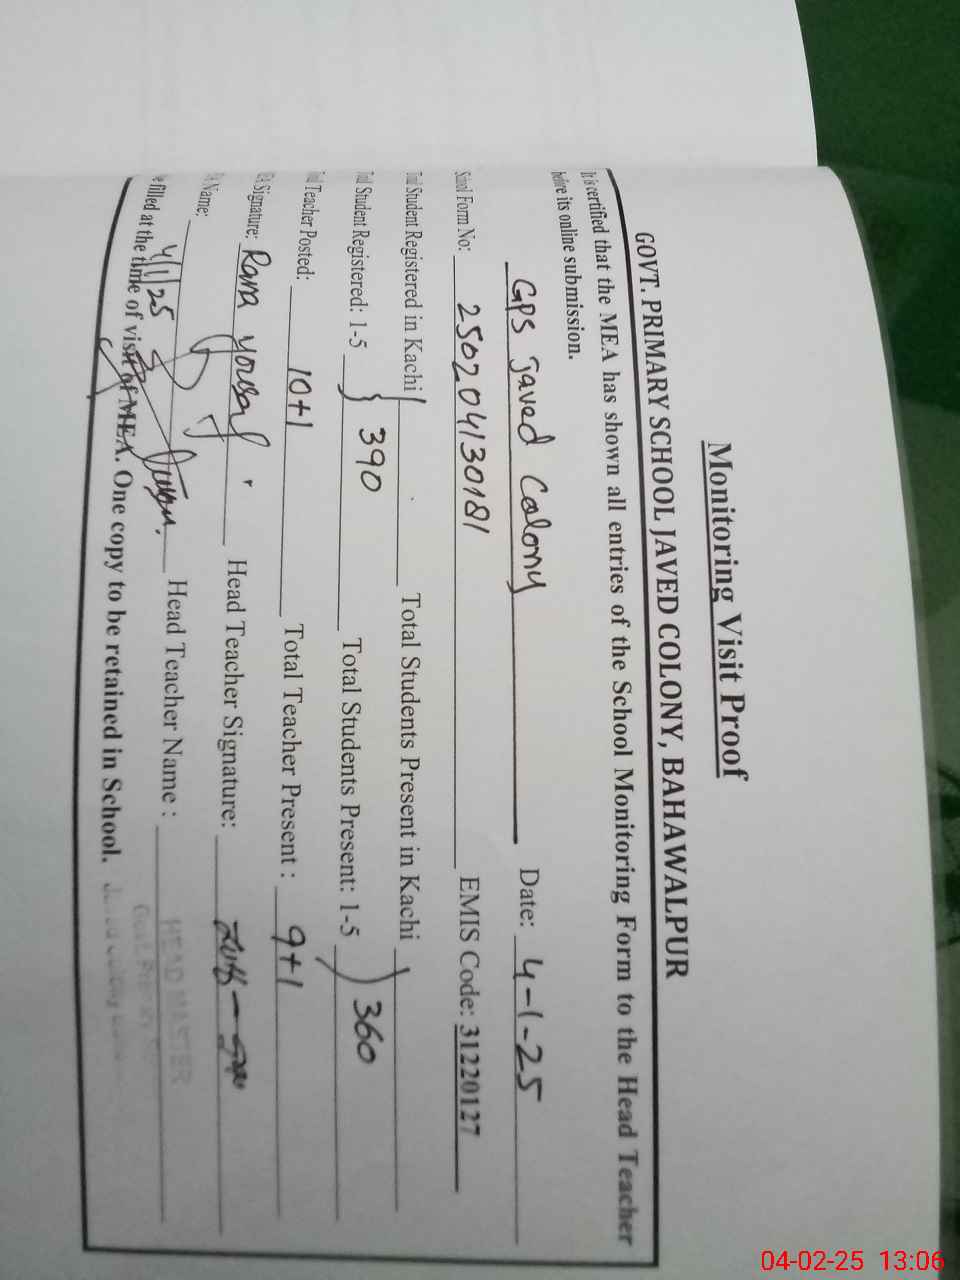 Monitoring Visit Proof
GOVT. PRIMARY SCHOOL JAVED COLONY, BAHAWALPUR
It is certified that the MEA has shown all entries of the School Monitoring Form to the Head Teacher
before its online submission.
GPS Javed Colony Date: 4-1-25
School Form No: 250204130181 EMIS Code: 31220127
Student Registered in Kachi Total Students Present in Kachi
Student Registered: 1-5 } 390 Total Students Present: 1-5 ) 360
Teacher Posted: 10+1 Total Teacher Present : 9+1
Signature: Rana yousaf Head Teacher Signature:
Name: Head Teacher Name :
4/1/25
HEAD MASTER
filled at the time of visit of MEA. One copy to be retained in School.
04-02-25 13:06